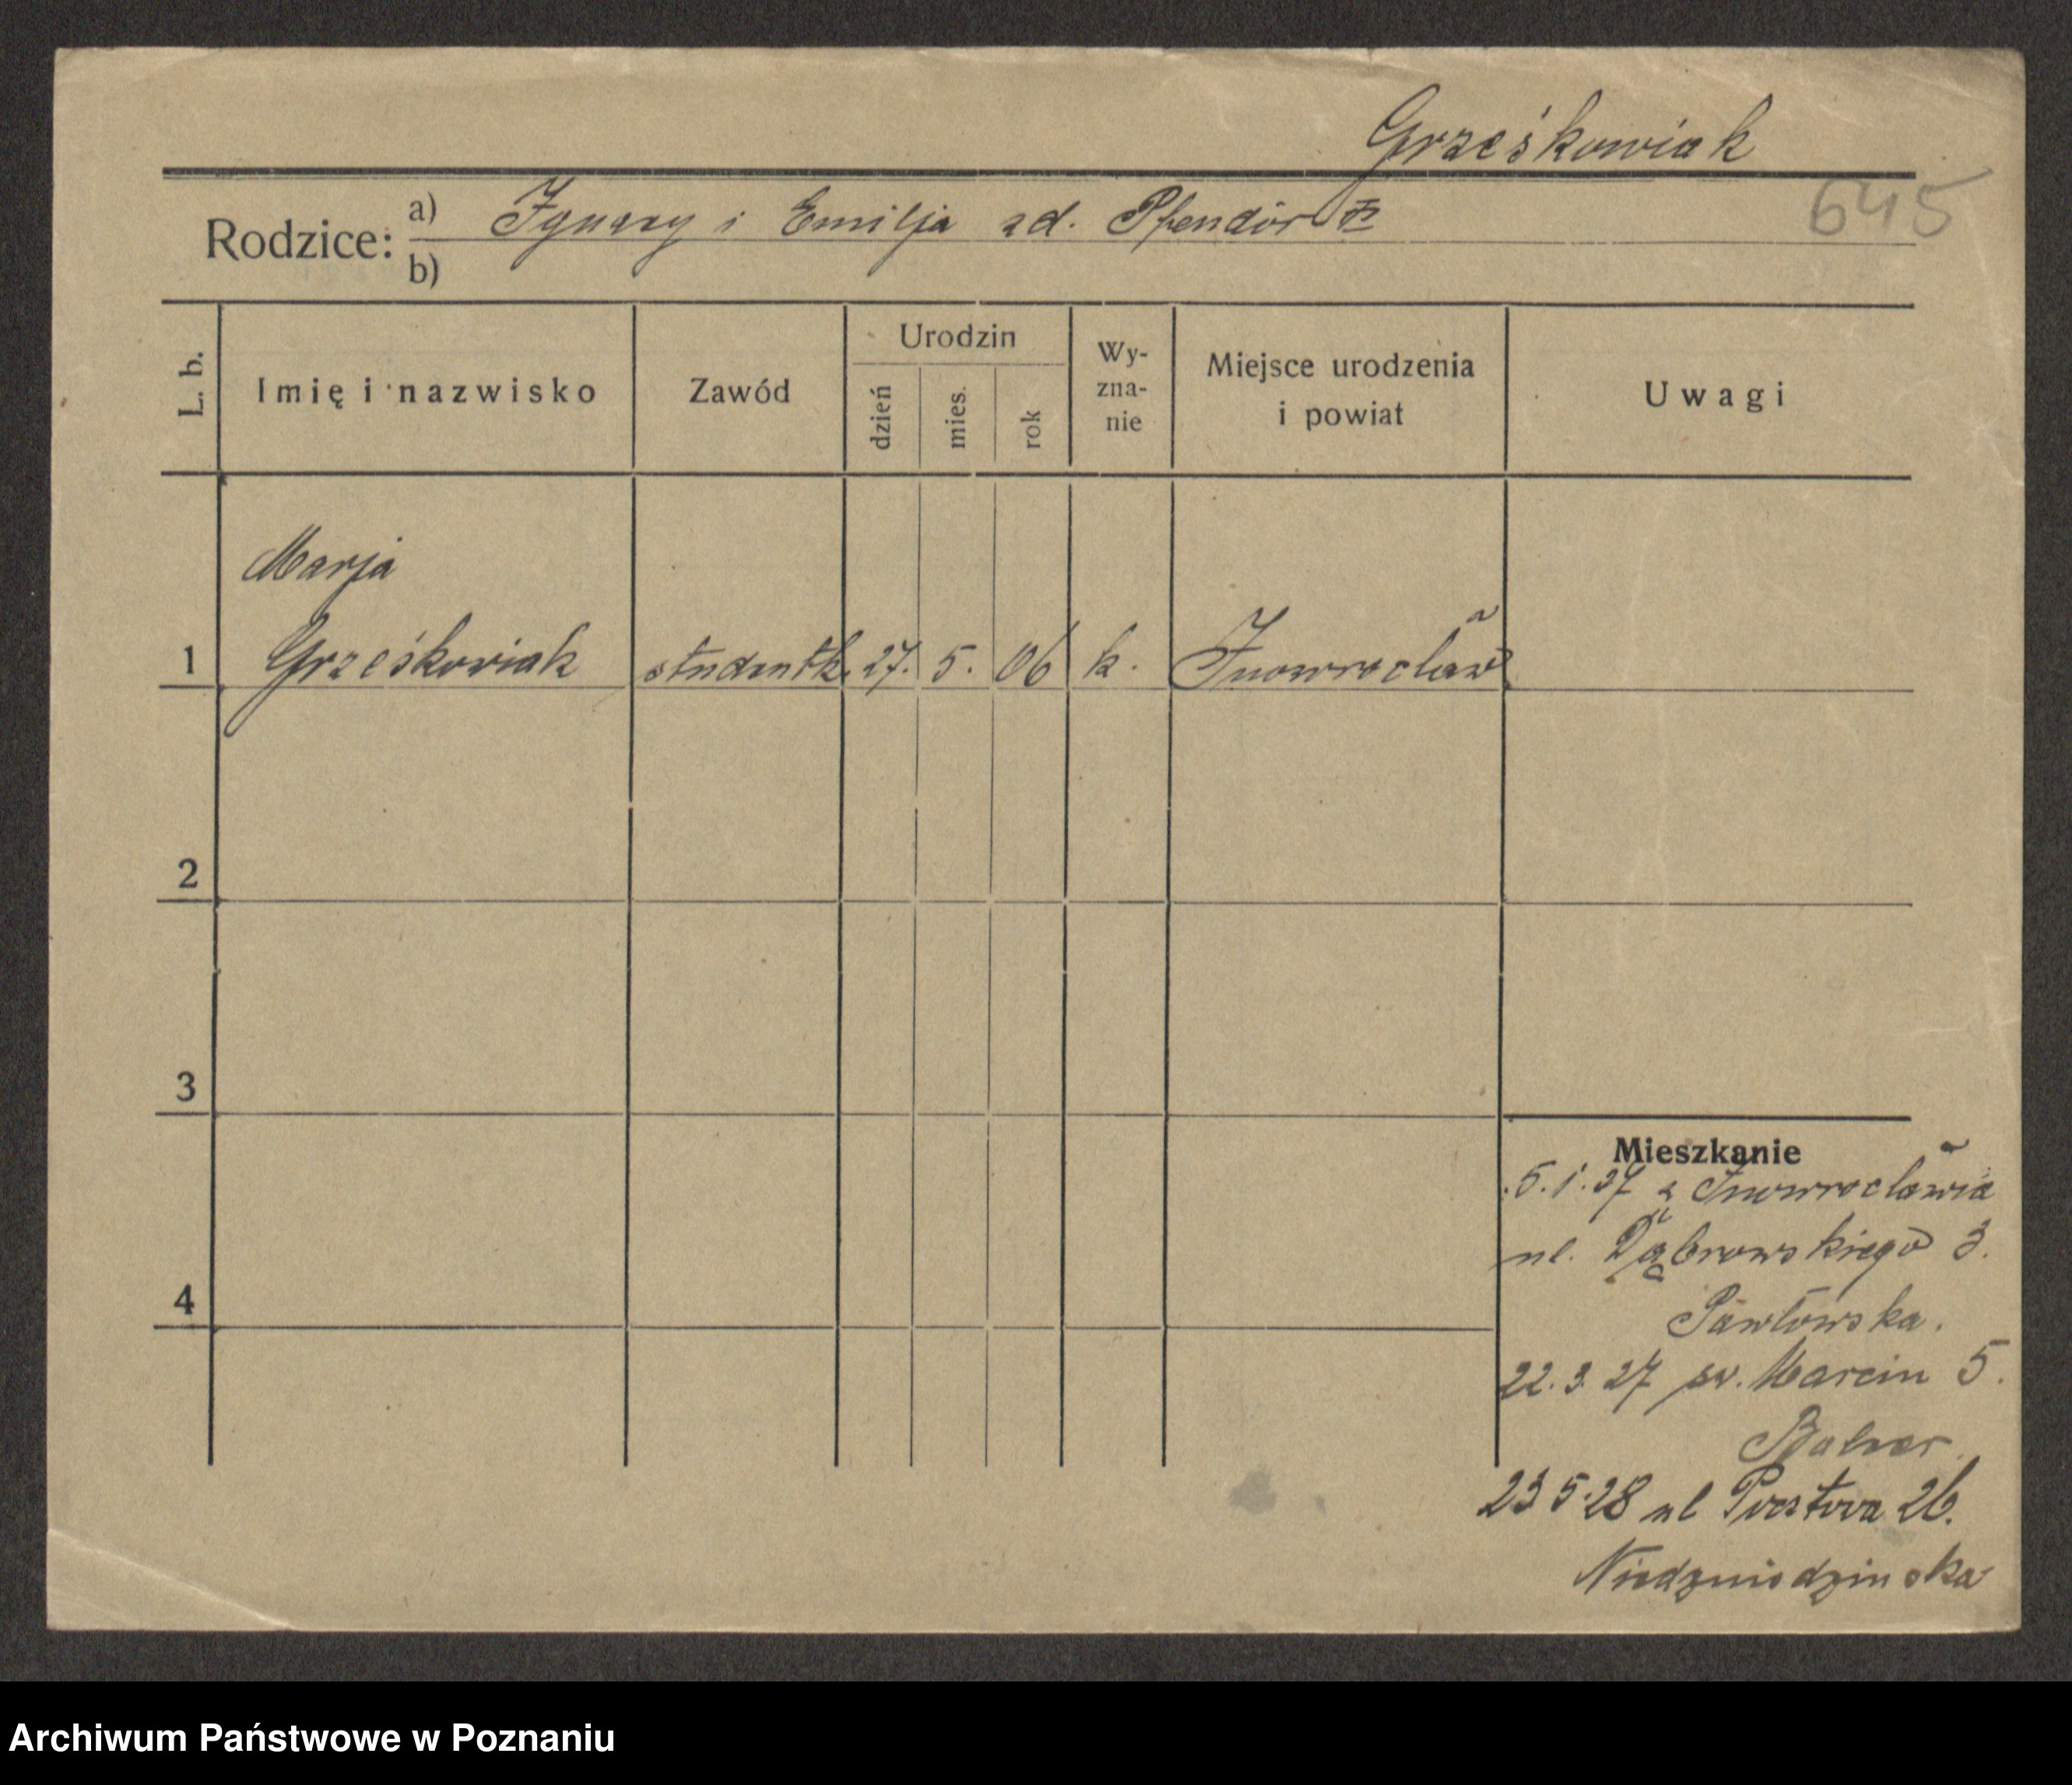 Grześkowiak
645
Rodzice: a) Ignacy i Emilja zd.
b)
L. b.
Imię i nazwisko
Zawód
Urodzin
dzień
mies.
rok
Wy-
zna-
nie
Miejsce urodzenia
i powiat
Uwagi
Marja
1 Grześkowiak studentk. 27. 5. 06 k. Inowrocław
2
3
4
Mieszkanie
5.1.27 z Inowrocławia
ul. Dąbrowskiego 3.
Pawłowska.
22.3.27 św. Marcin 5.
23 5.28 ul Pocztowa 26.
Niedzwiedzinska
Archiwum Państwowe w Poznaniu